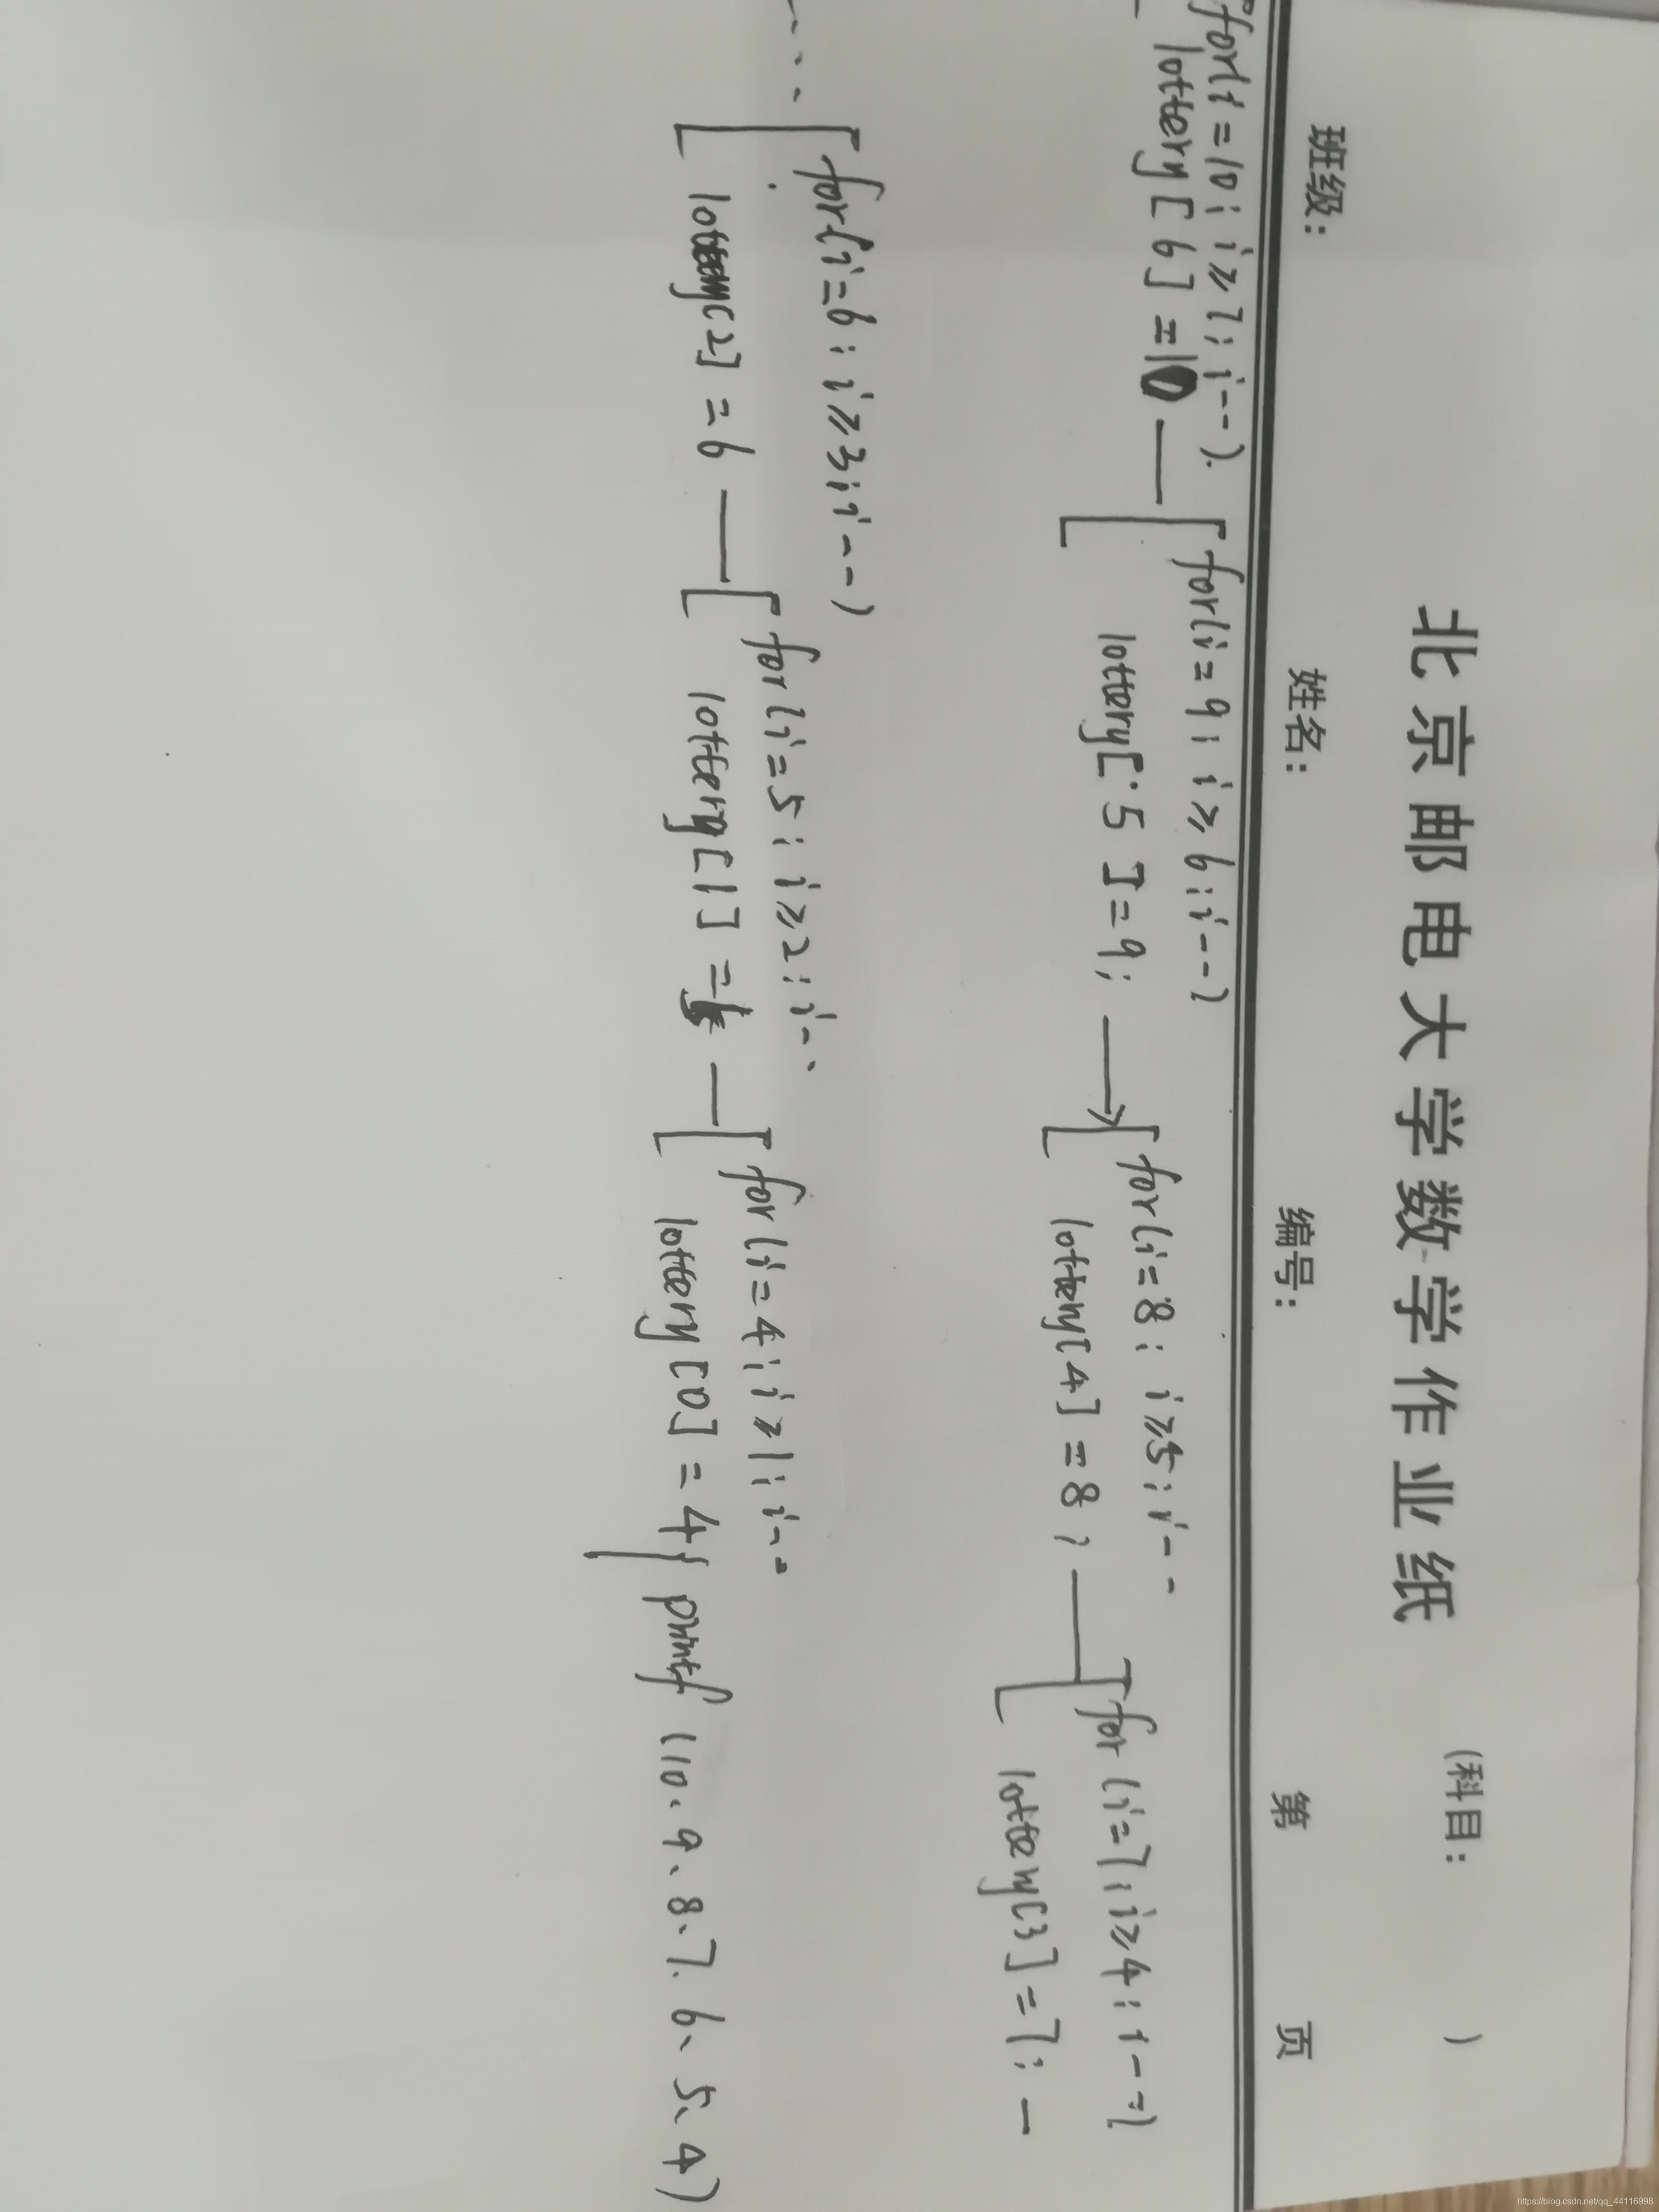 北京邮电大学数学作业纸 (科目: )
班级: 姓名: 编号: 第 页
for(i=10; i≥7; i--).
lottery[6]=10
for(i=9; i≥6; i--)
lottery[5]=9;
for(i=8; i≥5; i--
lottery[4]=8;
for(i=7; i≥4; i--)
lottery[3]=7;
for(i=6; i≥3; i--)
lottery[2]=6
for(i=5; i≥2; i--
lottery[1]=
for(i=4; i≥1; i--
lottery[0]=4;
printf(10、9、8、7、6、5、4)
https://blog.csdn.net/qq_44116998